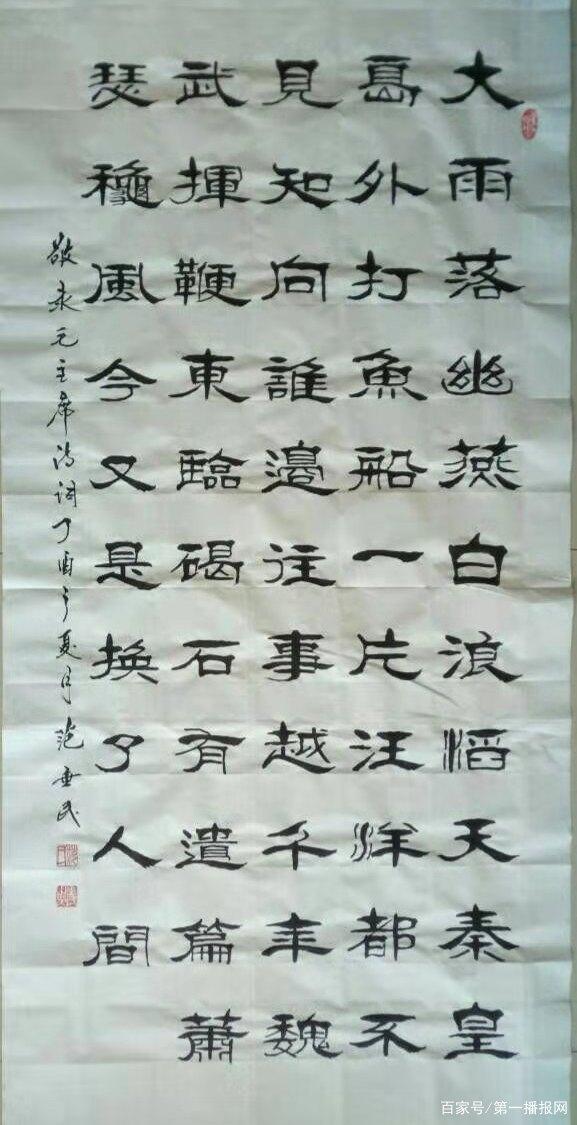 大雨落幽燕白浪滔天秦皇
島外打魚船一片汪洋都不
見知向誰邊往事越千年魏
武揮鞭東臨碣石有遺篇蕭
瑟龝風今又是換了人間
敬录毛主席诗词丁酉之夏月范垂民
百家号/第一播报网